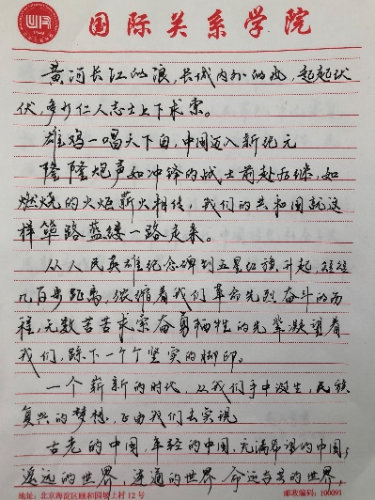 国际关系学院
黄河长江的浪,长城内外的风,起起伏
伏,多少仁人志士上下求索。
雄鸡一唱天下白,中国迈入新纪元
隆隆炮声如冲锋的战士前赴后继,如
燃烧的火炬薪火相传,我们的共和国就这
样筚路蓝缕一路走来。
从人民英雄纪念碑到五星红旗升起,短短
几百步距离,浓缩着我们革命先烈奋斗的历
程,无数苦苦求索奋勇牺牲的先辈凝望着
我们,踩下一个个坚实的脚印。
一个崭新的时代,从我们手中诞生,民族
复兴的梦想,正由我们去实现
古老的中国,年轻的中国,充满希望的中国;
遥远的世界,连通的世界,命运与共的世界,
地址:北京海淀区颐和园坡上村12号 邮政编码:100091